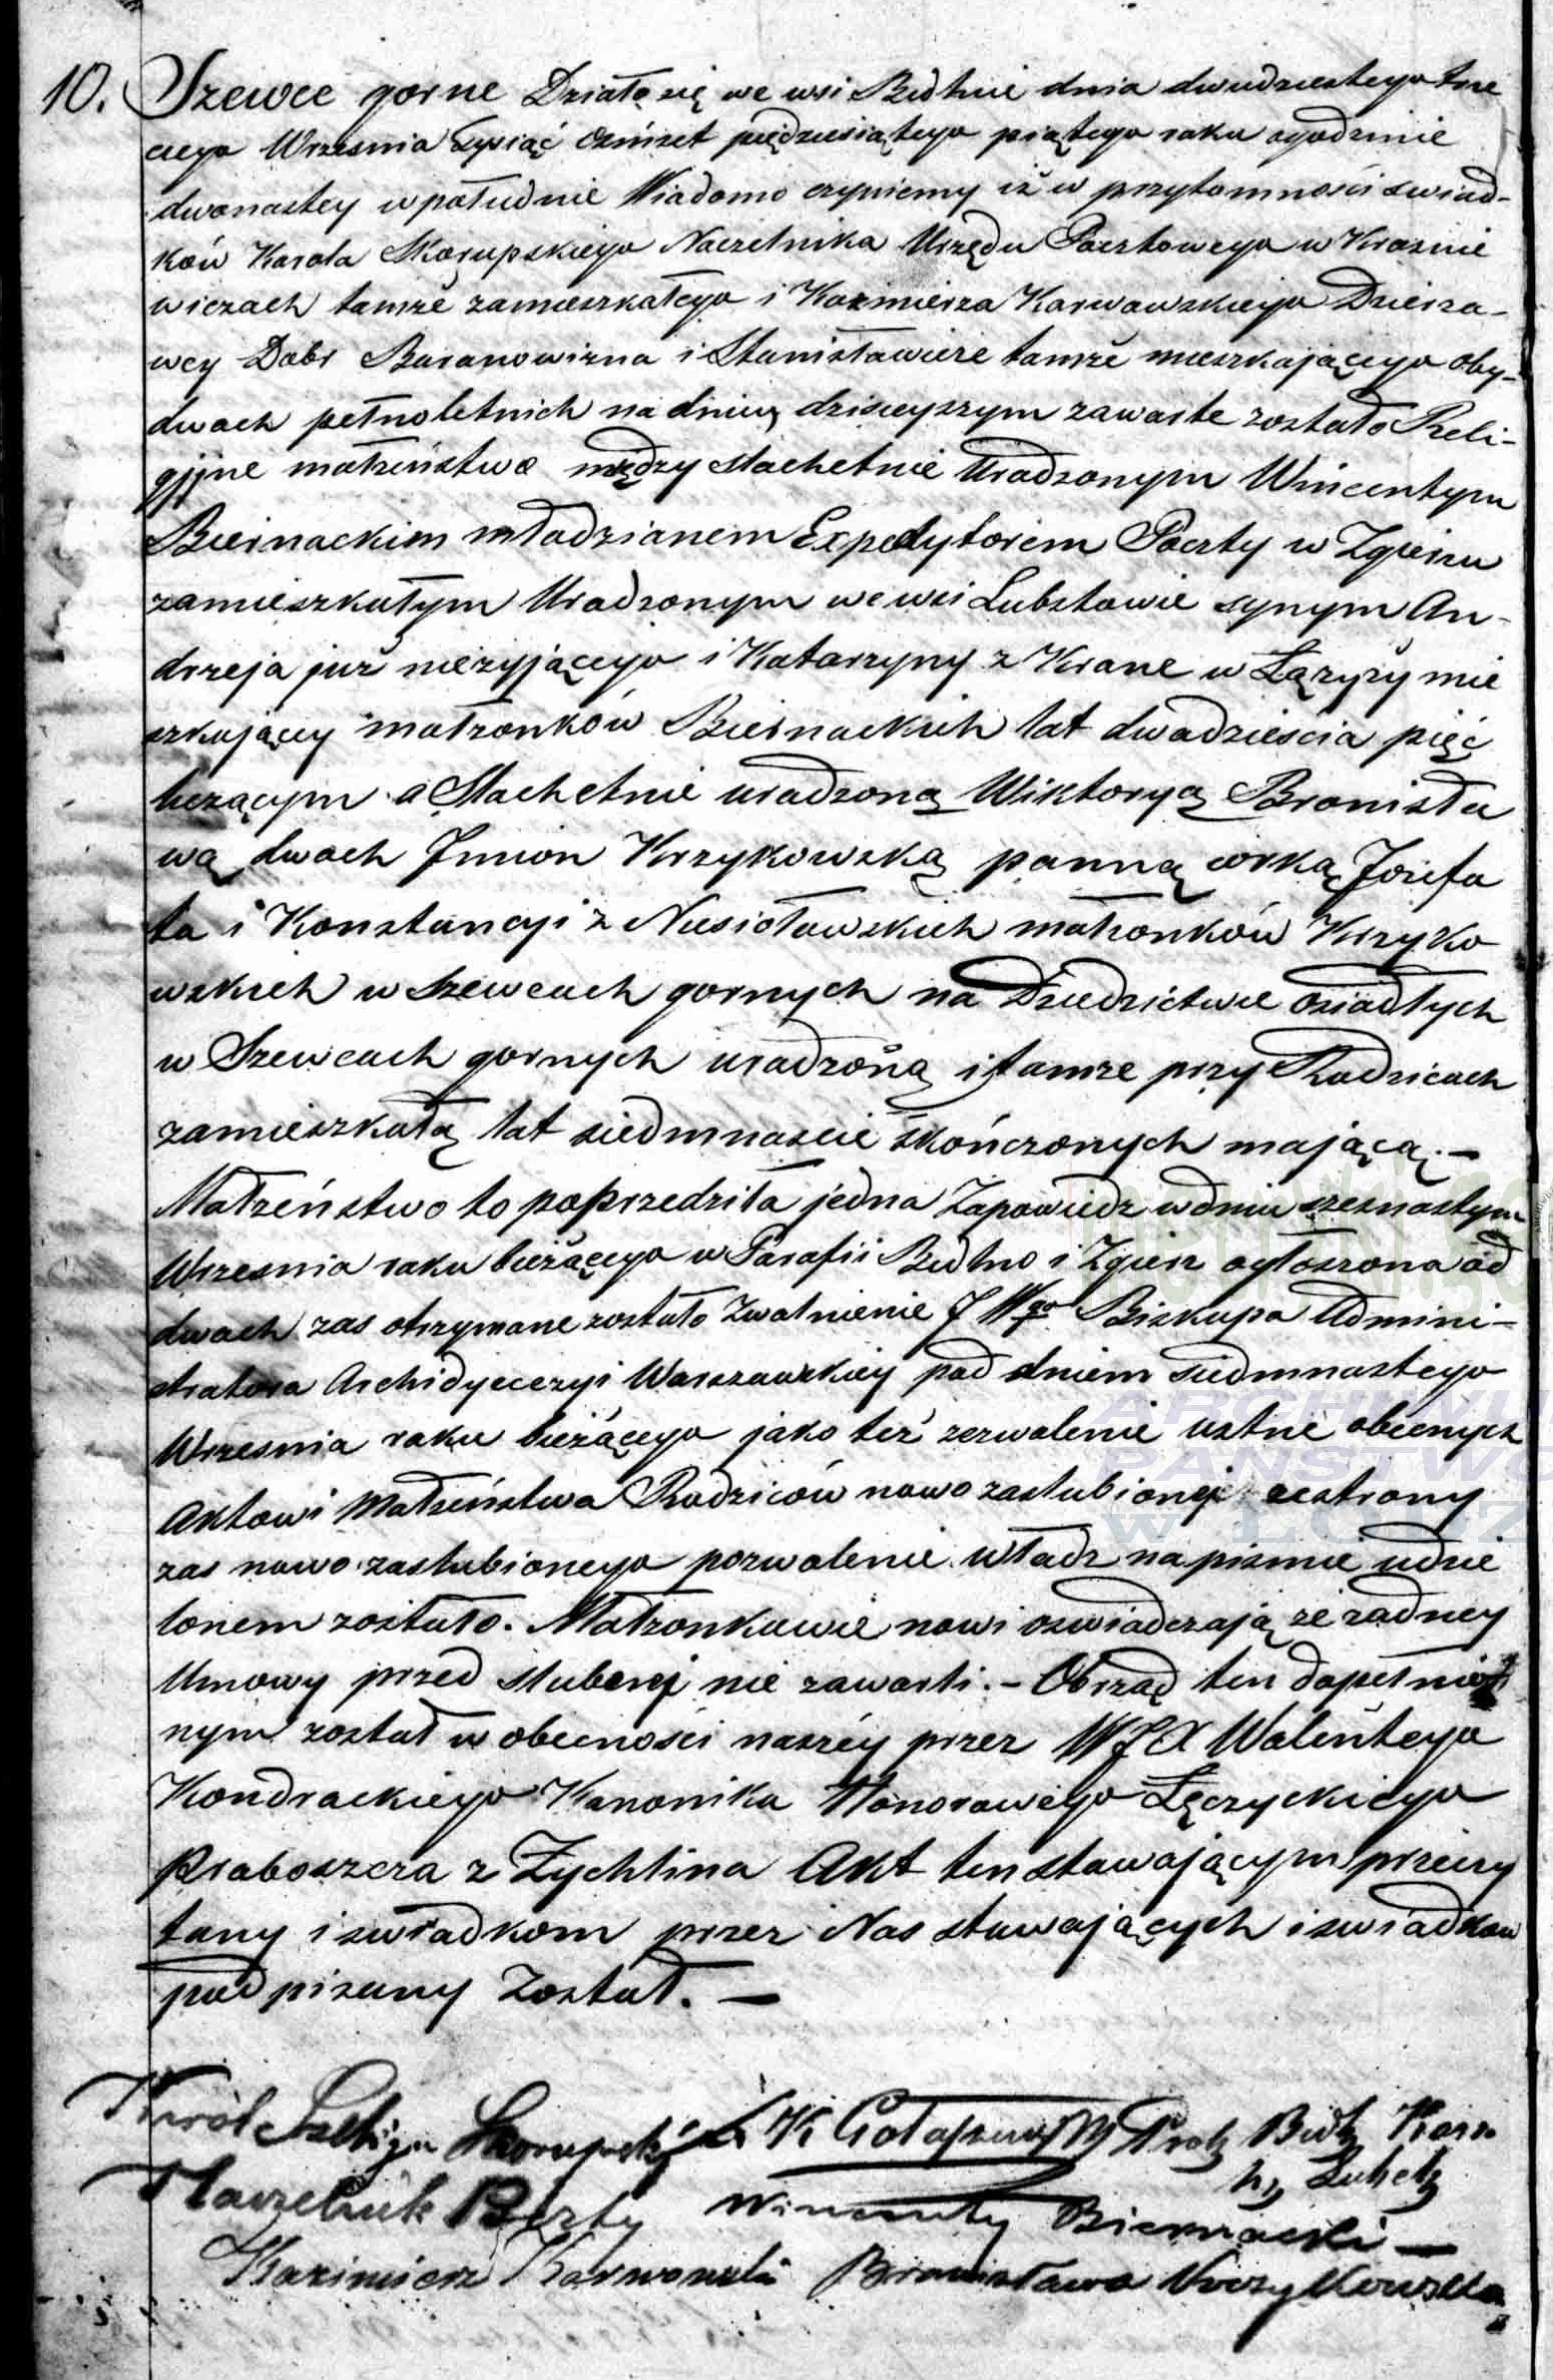 10. Szewce gorne Działo się we wsi Bedlnie dnia dwudziestego trze
ciego Września tysiąć ośmset pięćdziesiątego piątego roku o godzinie
dwonastey w południe Wiadomo czyniemy iż w przytomności swiad-
ków Karola Skorupskiego Naczelnika Urzędu Pocztowego w Krosnie
wiczach tamże zamieszkałego i Kazimierza Karwowskiego Dzierża-
wcy Dobr Baranowizna i Stanisławice tamże mieszkającego oby-
dwach pełnoletnich na dniu dzisieyszym zawarte zostało Reli-
gijne małżeństwo między Slachetnie Urodzonym Wincentym
Biernackim młodzianem Expedytorem Poczty w Zgierzu
zamieszkałym Urodzonym we wsi Lubstowie synym An-
drzeja już nieżyjącego i Katarzyny z Krane w Łążyży mie
szkającey małżonków Biernackich lat dwadzieścia pięć
liczącym a Slachetnie urodzoną Wiktoryą Bronisła
wą dwoch Jmion Krzykowską panną corką Jozefa
ta i Konstancyi z Niesiołowskich małżonków Krzyko
wskich w Szewcach gornych na Dziedzictwie osiadłych
w Szewcach gornych urodzoną i tamże przy Rodzicach
zamieszkałą lat siedmnaście skończonych mającą. –
Małżeństwo to poprzedziła jedna Zapowiedz w dniu szesnastym
Września roku bieżącego w Parafii Bedlno i Zgierz ogłoszona od
dwoch zas otrzymane zostało Zwolnienie J Wgo Biskupa Admini-
stratora Archidyecezyi Warszawskiey pod dniem siedmnastego
Września roku bieżącego jako też zezwolenie ustne obecnych
Aktowi Małżeństwa Rodziców nowo zaslubionej ze strony
zas nowo zaslubionego pozwolenie władz na pismie udzie
lonem zostało. Małżonkowie nowi oswiadczają że żadney
Umowy przed slubnej nie zawarli. – Obrząd ten dopełnio
nym został w obecności naszéy przez WJX Walentego
Kondrackiego Kanonika Honorowego Łęczyckiego
Proboszcza z Żychlina Akt ten stawającym przeczy
tany i swiadkom przez Nas stawających i swiadkow
podpisany Został. –
Karól Skorupski X. K. Prob Bedl
Naczelnik Poczty Wincenty Biernacki –
Kazimierz Karwowski Bronisława Krzykowska
ARCHIWUM
PAŃSTWO
W ŁODZ